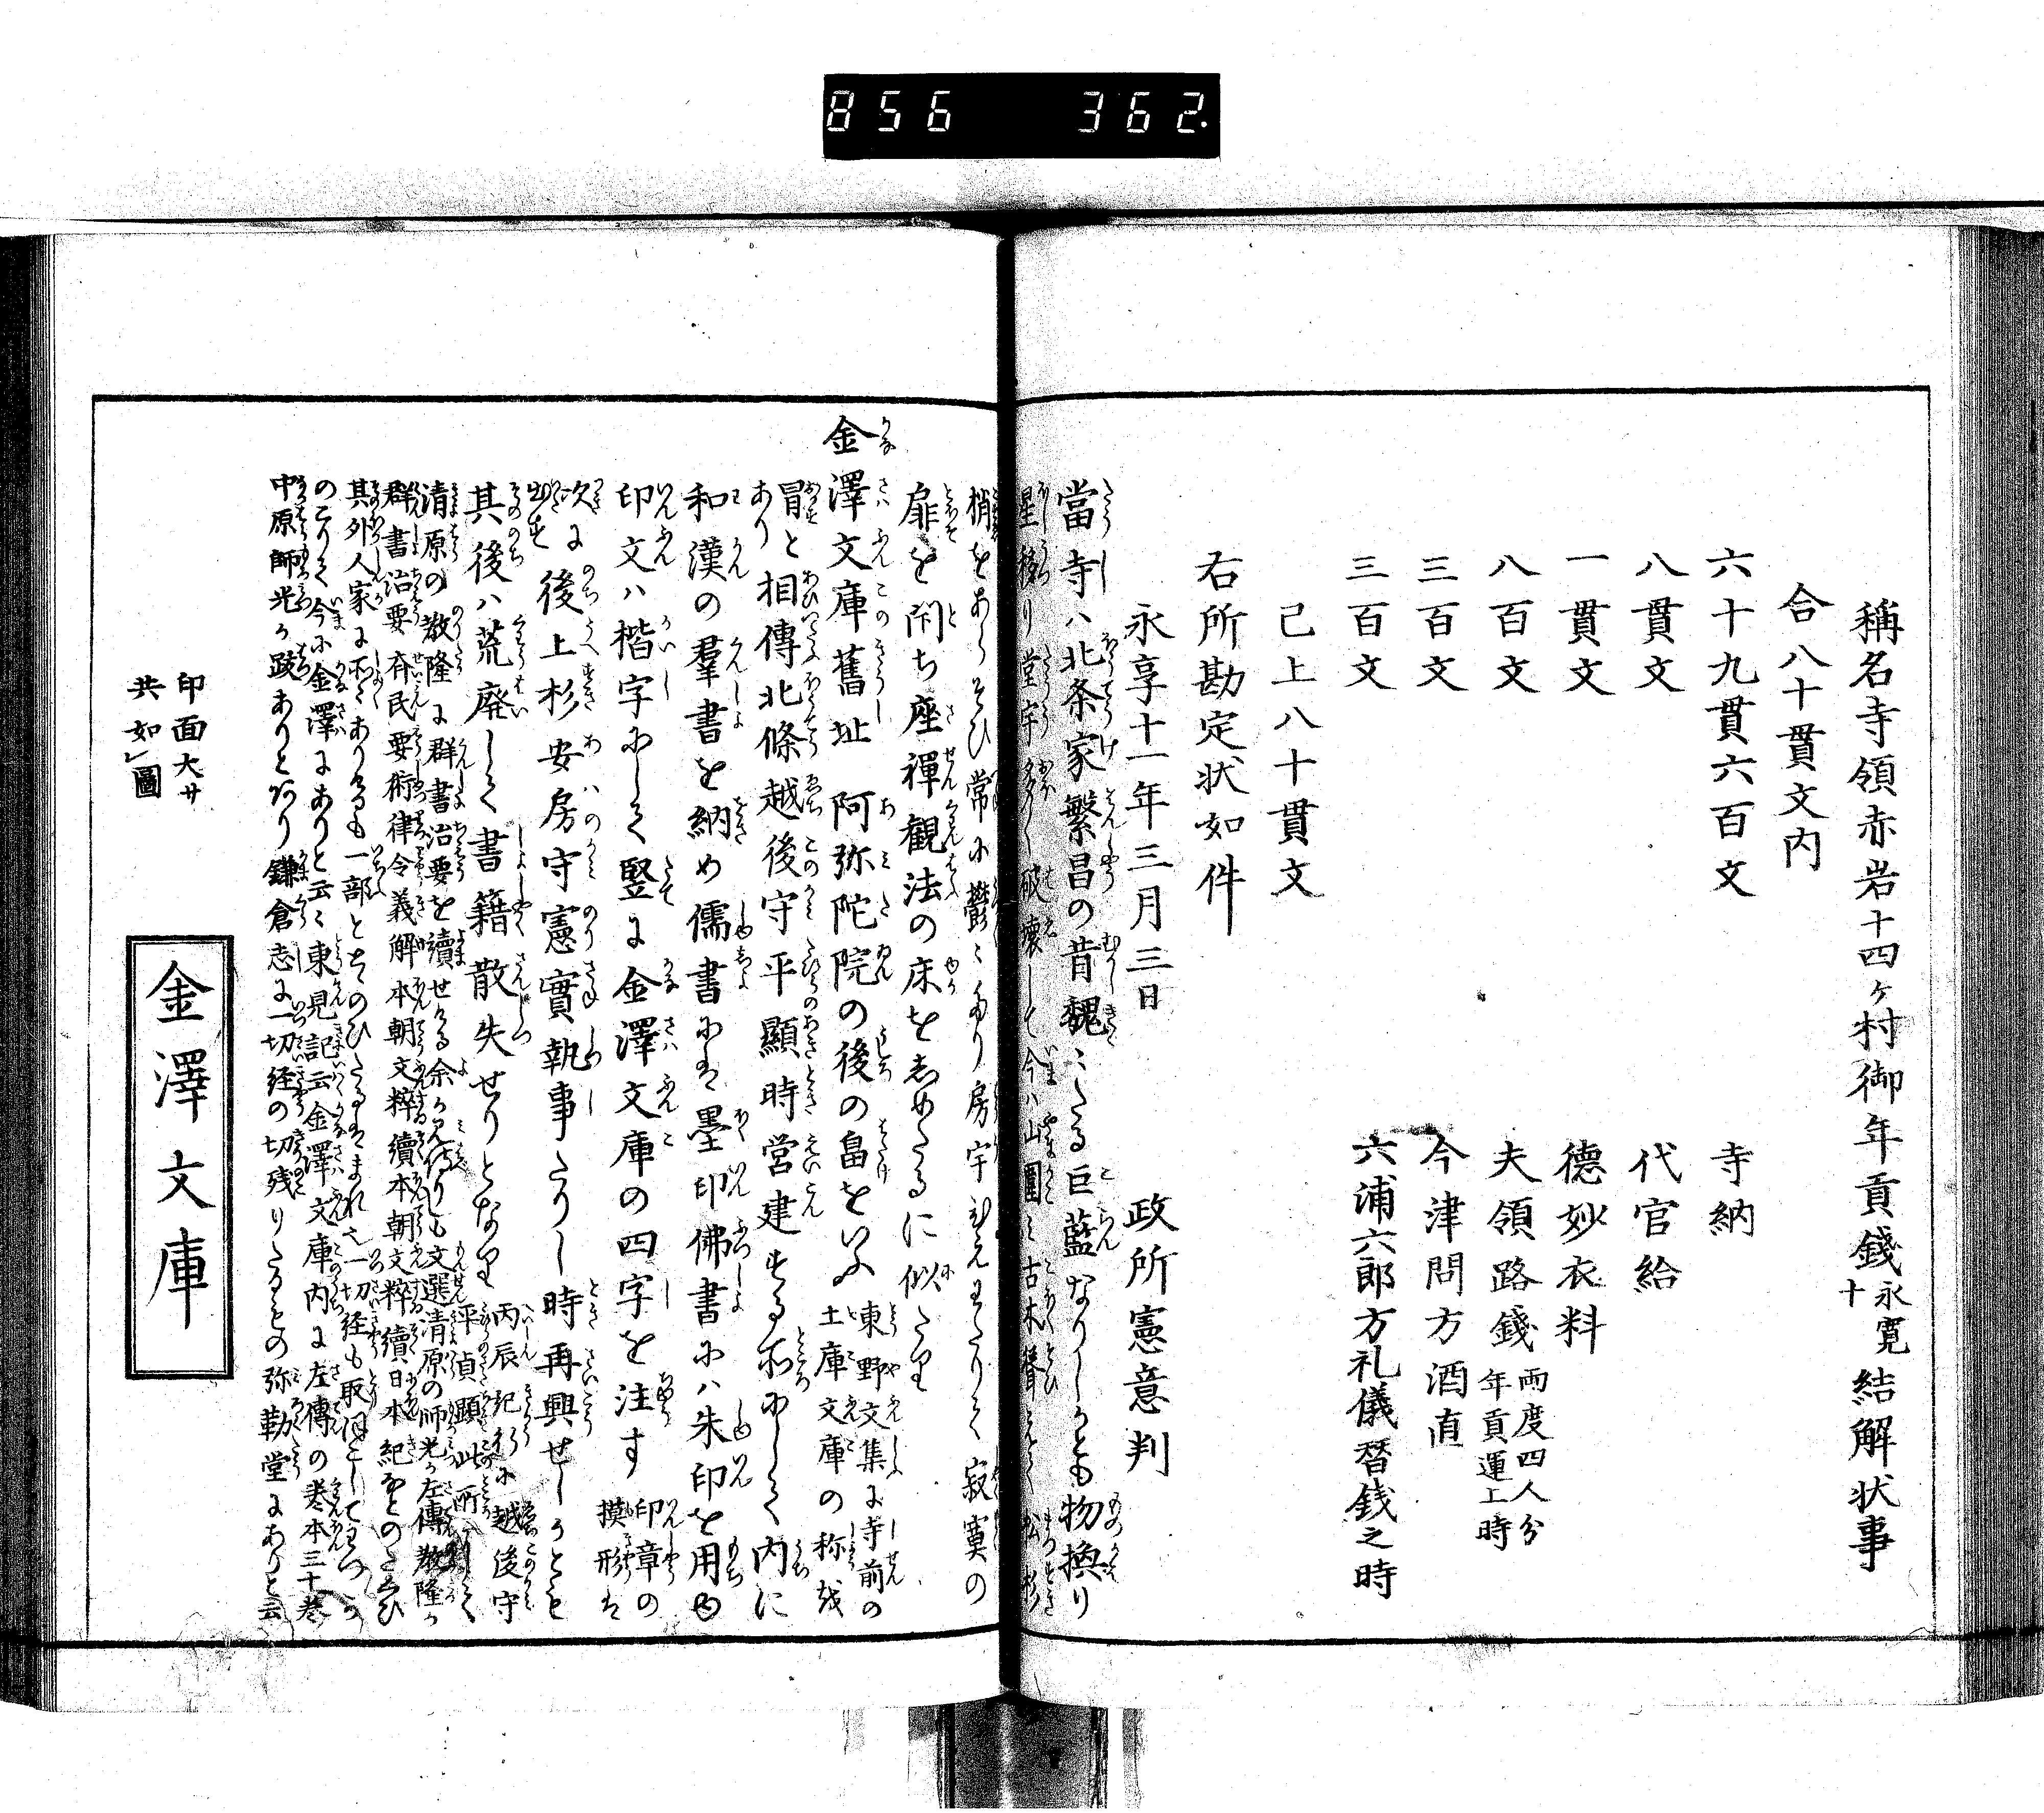 856 362.
稱名寺領赤岩十四ヶ村御年貢錢永寛十結解状事
合八十貫文内
六十九貫六百文 寺納
八貫文 代官給
一貫文 德妙衣料
八百文 夫領路錢兩度四人分年貢運上時
三百文 今津問方酒直
三百文 六浦六郎方礼儀替銭之時
已上八十貫文
右所勘定状如件
永享十一年三月三日 政所憲意判
當寺ハ北条家繁昌の昔巍〻たる巨藍なりしかとも物換り
星移り堂宇多く破壊して今ハ山圍ミ古木聳えて松杉
梢をあらそひ常に鬱〻たり房宇甍えわたりて寂寞の
扉を閇ち座禪観法の床をしめたるに似たり
金澤文庫舊址 阿弥陀院の後の畠をいふ東野文集に寺前の土庫文庫の称を
冒とありと相傳北條越後守平顯時営建する所にして内に
和漢の羣書を納め儒書にハ墨印佛書にハ朱印を用ゆ
印文ハ楷字にして竪に金澤文庫の四字を注す印章の摸形ハ
次に出す後上杉安房守憲實執事たりし時再興せしかとも
其後ハ荒廃して書籍散失せりとなり丙辰紀行に越後守平貞顯此所にて
清原の敎隆に群書治要を讀せける余か見侍りしも文選清原の師光か左傳敎隆か
群書治要齊民要術律令義解本朝文粹續本朝文粹續日本紀などのたぐひ
其外人家に所〻ありけるも一部とゝのひたるハまれ也一切経も取ほこしてわつか
のこりて今に金澤にありと云〻東見記云金澤文庫内に左傳の巻本三十巻
中原師光か跋ありとあり鎌倉志に一切経の切残りたるもの弥勒堂にありと云
印面大サ
共如圖
金澤文庫